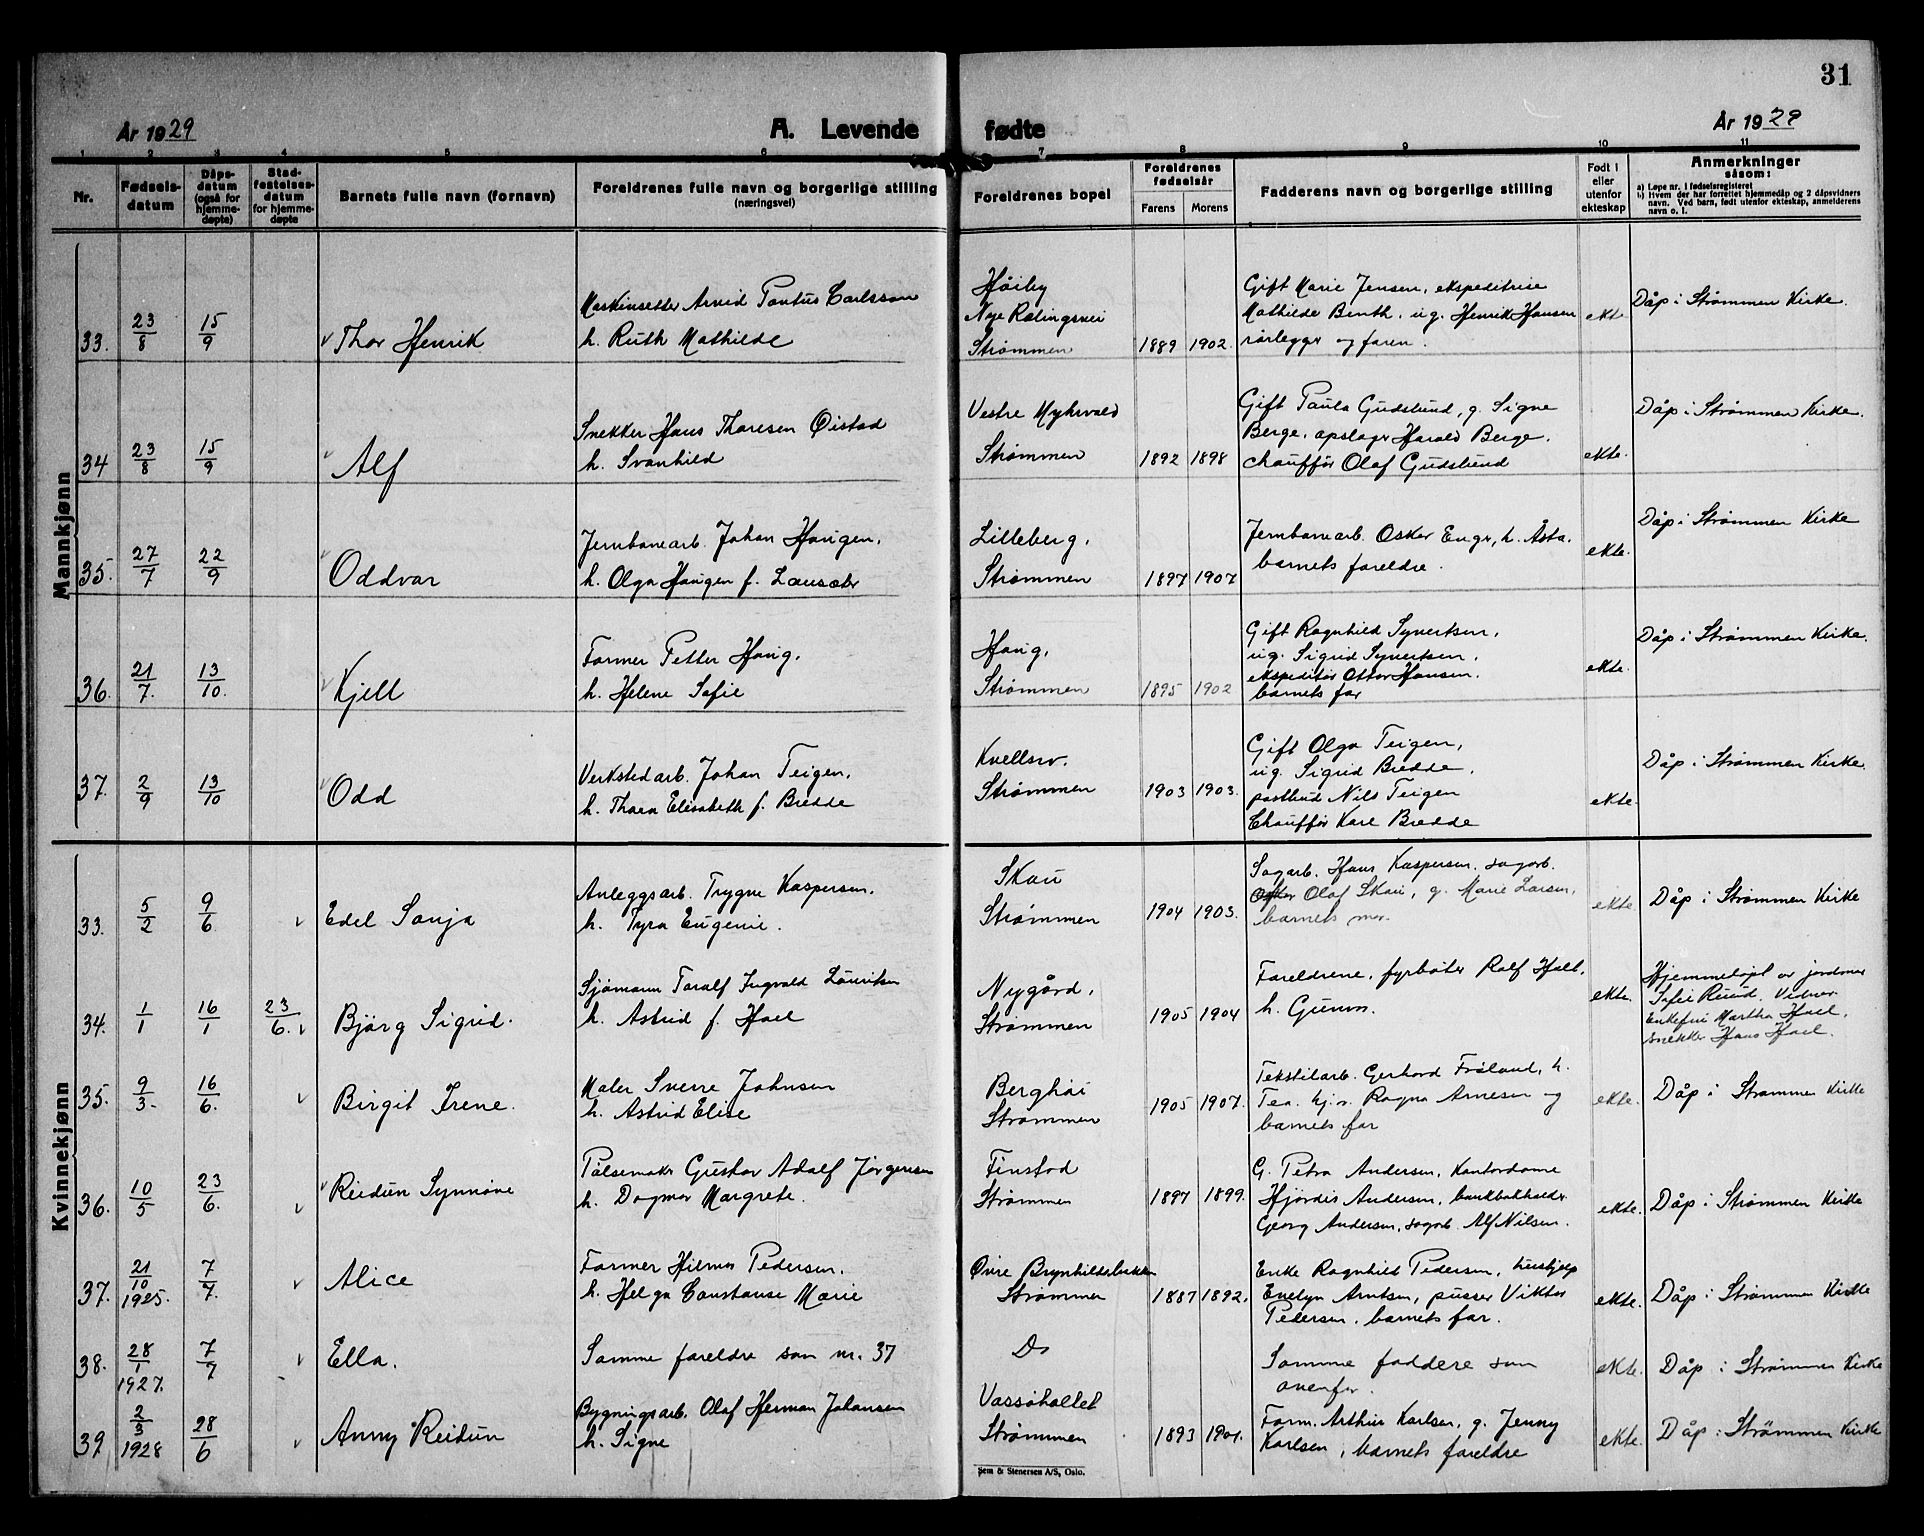 31
År 1929
A. Levende fødte
År 1929
1 2 3 4 5 6 7 8 9 10 11
Nr.
Fødsels-
datum
Dåps-
datum
(også for
hjemme-
døpte)
Stad-
festelses-
datum
for hjemme-
døpte
Barnets fulle navn (fornavn)
Foreldrenes fulle navn og borgerlige stilling
(næringsvei)
Foreldrenes bopel
Foreldrenes
fødselsår
Farens
Morens
Fadderens navn og borgerlige stilling
Født i
eller
utenfor
ekteskap
Anmerkninger
såsom:
a) Løpe nr. i fødselsregisteret
b) Hvem der har forrettet hjemmedåp og 2 dåpsvidners
navn. Ved barn, født utenfor ekteskap, anmelderens
navn o. l.
Mannkjønn
33. 23/8 15/9 Thor Henrik
Maskinsetter Arvid Pontus Carlsson
h. Ruth Mathilde
Høiby
Nye Rælingsvei
Strømmen 1889 1902
Gift Marie Jensen, ekspeditrise
Mathilde Benth, ug. Henrik Hansen
rørlegger og faren.
ekte Dåp i Strømmen Kirke.
34 23/8 15/9 Alf
Snekker Hans Thoresen Øistad
h. Svanhild
Vestre Myhrvold
Strømmen 1892 1898
Gift Paula Gudslund, g. Signe
Berge, opslager Harald Berge.
chauffør Olaf Gudslund
ekte. Dåp i Strømmen Kirke.
35. 27/7 22/9 Oddvar
Jernbanearb. Johan Haugen.
h. Olga Haugen f.
Lilleberg,
Strømmen 1897 1907
Jernbanearb. Oskar Enger, h. Åsta.
barnets foreldre.
ekte. Dåp i Strømmen Kirke
36. 21/7. 13/10. Kjell
Former Petter Haug.
h. Helene Sofie
Haug,
Strømmen 1895 1902
Gift Ragnhild Syvertsen,
ug. Sigrid Syvertsen,
ekspeditør Ottar Hansen.
barnets far
ekte. Dåp i Strømmen Kirke.
37. 2/9 13/10 Odd
Verkstedarb. Johan Teigen.
h. Thora Elisabeth f. Bredde
Kvellsv.
Strømmen 1903 1903.
Gift Olga Teigen,
ug. Sigrid Bredde.
postbud Nils Teigen
Chauffør Kare Bredde
ekte. Dåp i Strømmen Kirke.
Kvinnekjønn
33. 5/2 9/6 Edel Sonja
Anleggsarb. Trygve Kaspersen.
h. Tyra Eugenie.
Skau
Strømmen 1904 1903.
Sagarb. Hans Kaspersen, sagarb.
Olaf Skau, g. Marie Larsen,
barnets mor.
ekte. Dåp i Strømmen Kirke
34. 1/1 16/1 23/6. Bjørg Sigrid.
Sjømann Toralf Ingvald Lauritsen
h. Astrid f. Hoel
Nygård,
Strømmen 1905 1904
Foreldrene, fyrbøter Rolf Holt.
h. Gunvor.
ekte. Hjemmedøpt av jordmor
Sofie Ruud. Vidner
Enkefru Martha Hoel,
snekker Hans Hoel.
35. 9/3. 16/6. Birgit Irene.
Maler Sverre Johnsen
h. Astrid Elise
Berghøi
Strømmen 1905 1907.
Tekstilarb. Gerhard Frøland, h.
Tea. hj.v. Ragna Arnesen og
barnets far
ekte. Dåp i Strømmen Kirke
36. 10/5 23/6. Reidun Synnøve
Pølsemaker Gustav Adolf Jørgensen
h. Dagmar Margrete.
Finstad
Strømmen 1897 1899.
G. Petra Andersen, Kontordame
Hjördis Andersen, bankbokholder
Georg Andersen, sagarb. Alf Nilsen.
ekte. Dåp i Strømmen Kirke
37. 21/10 1925. 7/7. Alice
Former Hilmar Pedersen.
h. Helga Constanse Marie
Øvre Brynhildsbakken
Strømmen 1887 1892.
Enke Ragnhild Pedersen, hushjelp
Evelyn Arntsen, pusser Viktor
Pedersen, barnets far.
ekte. Dåp i Strømmen Kirke
38. 28/1 1927. 7/7 Ella.
Samme foreldre som nr. 37
Do
Samme faddere som
ovenfor.
ekte. Dåp i Strømmen Kirke
39 2/3 1928 28/6 Anny Reidun
Bygningsarb. Olaf Herman Johansen
h. Signe
Strømmen 1893 1901.
Form. Arthur Karlsen, g. Jenny
Karlsen, barnets foreldre
ekte. Dåp i Strømmen Kirke
Sem & Stenersen A/S, Oslo.